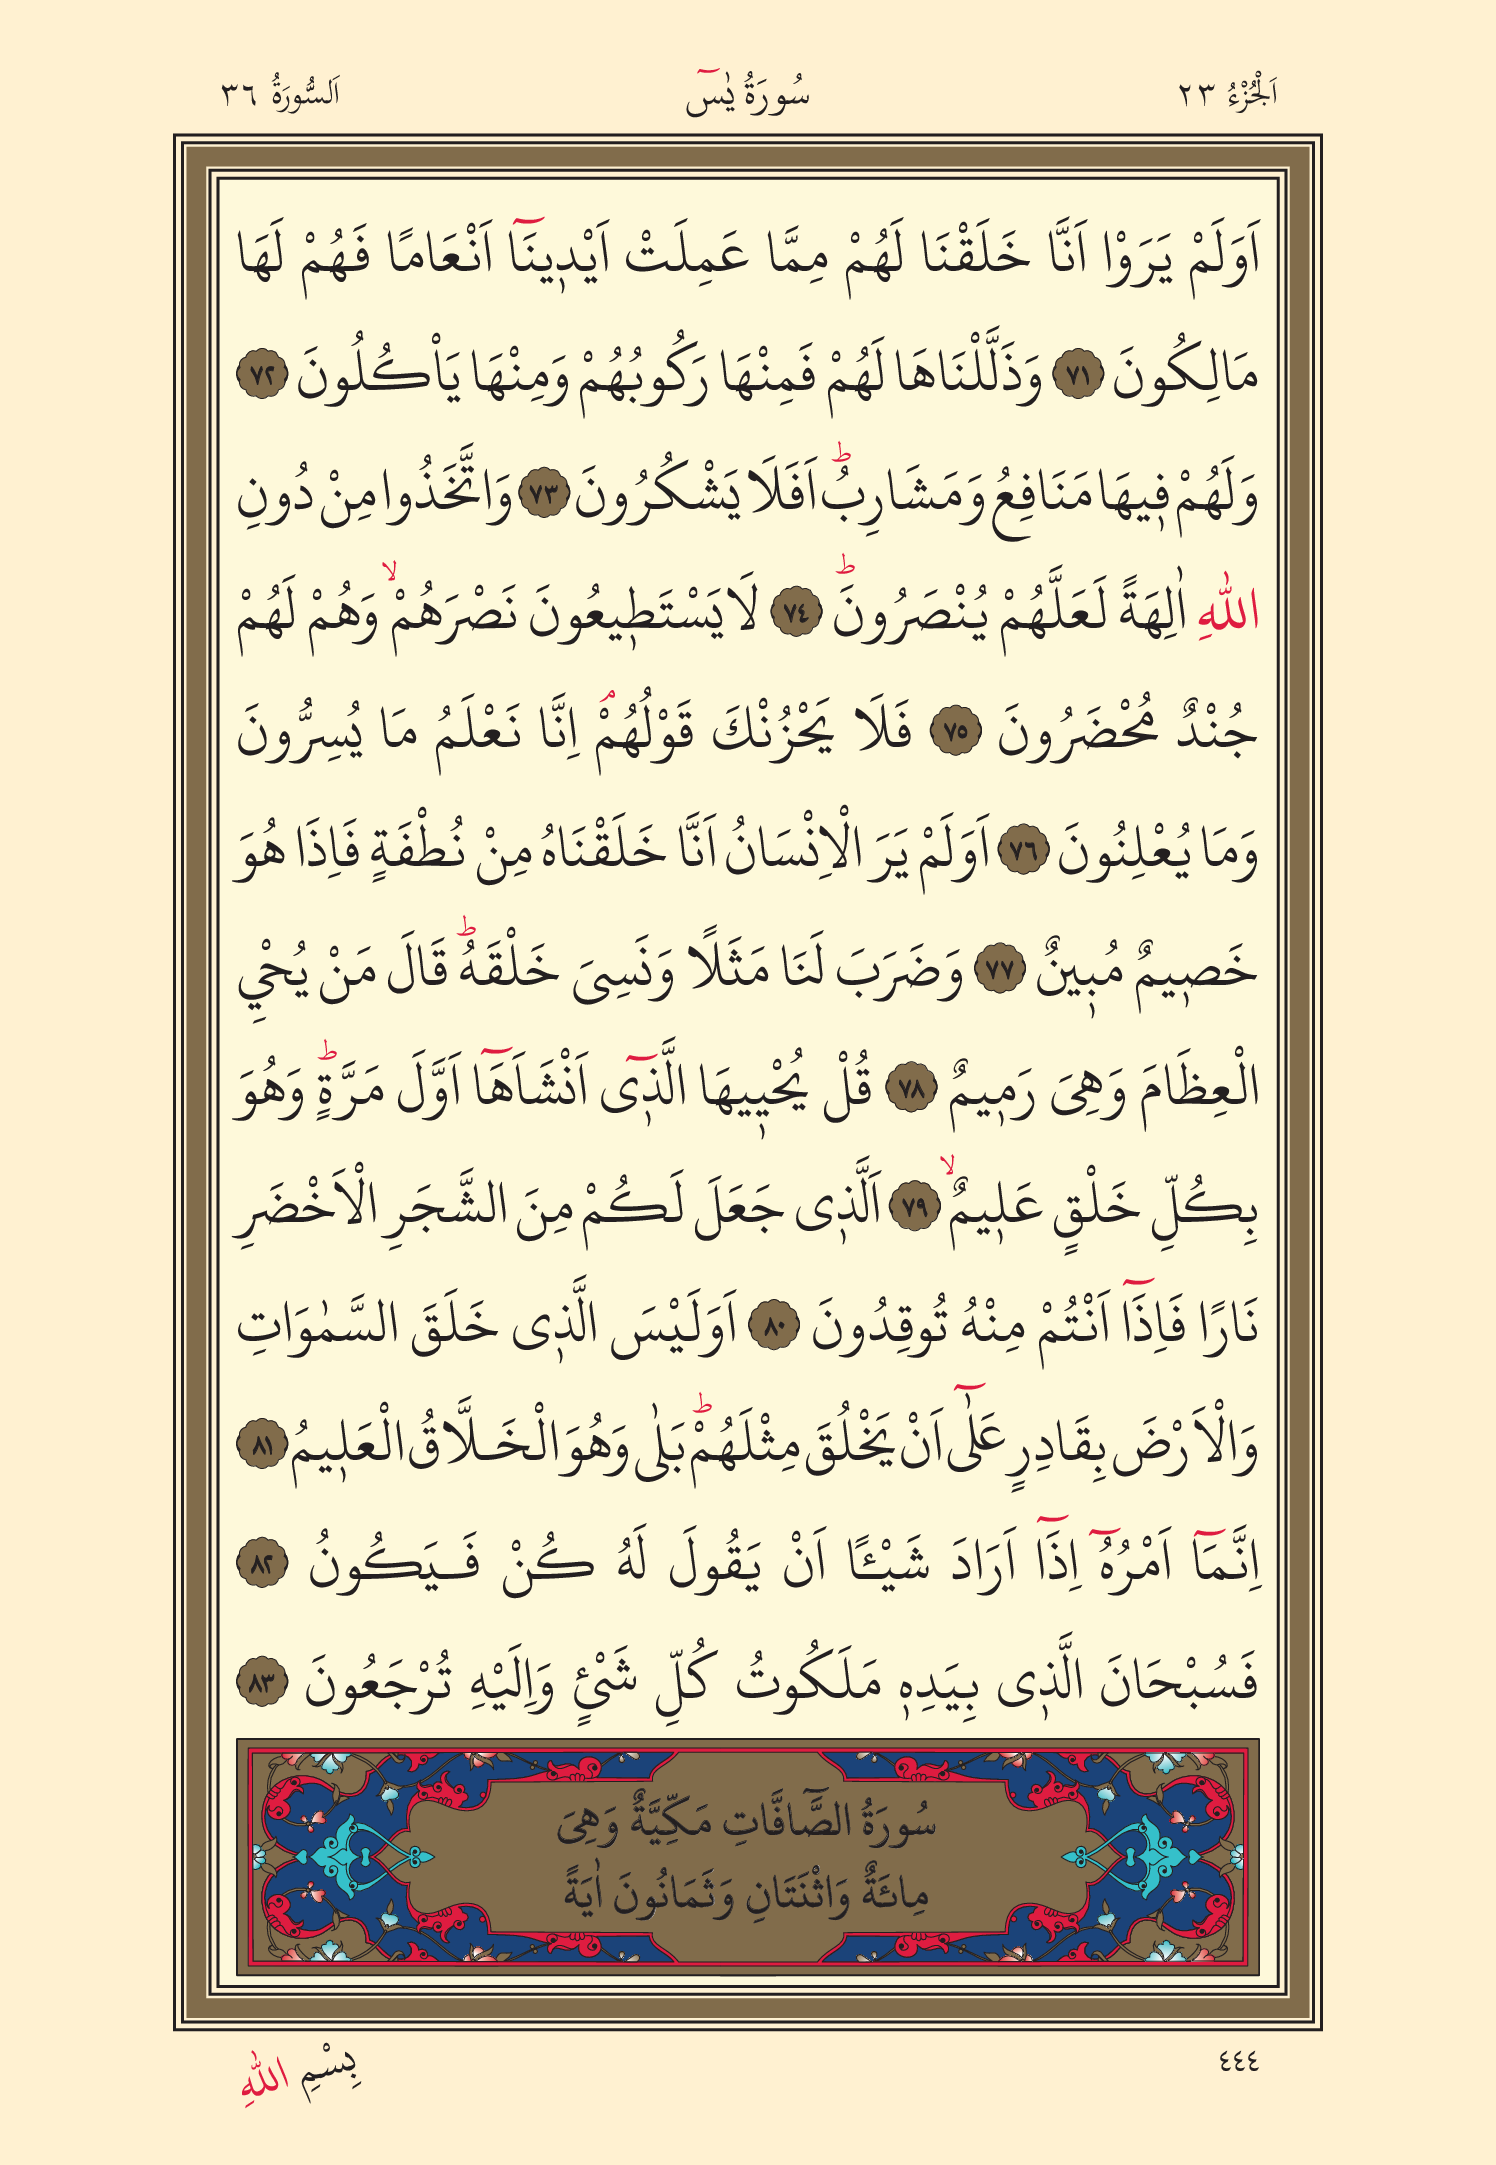 اَلْجُزْءُ ٢٣
سُورَةُ يٰسٓ
اَلسُّورَةُ ٣٦
اَوَلَمْ يَرَوْا اَنَّا خَلَقْنَا لَهُمْ مِمَّا عَمِلَتْ اَيْد۪ينَٓا اَنْعَامًا فَهُمْ لَهَا
مَالِكُونَ ﴿٧١﴾ وَذَلَّلْنَاهَا لَهُمْ فَمِنْهَا رَكُوبُهُمْ وَمِنْهَا يَاْكُلُونَ ﴿٧٢﴾
وَلَهُمْ ف۪يهَا مَنَافِعُ وَمَشَارِبُۜ اَفَلَا يَشْكُرُونَ ﴿٧٣﴾ وَاتَّخَذُوا مِنْ دُونِ
اللّٰهِ اٰلِهَةً لَعَلَّهُمْ يُنْصَرُونَۜ ﴿٧٤﴾ لَا يَسْتَط۪يعُونَ نَصْرَهُمْۙ وَهُمْ لَهُمْ
جُنْدٌ مُحْضَرُونَ ﴿٧٥﴾ فَلَا يَحْزُنْكَ قَوْلُهُمْۢ اِنَّا نَعْلَمُ مَا يُسِرُّونَ
وَمَا يُعْلِنُونَ ﴿٧٦﴾ اَوَلَمْ يَرَ الْاِنْسَانُ اَنَّا خَلَقْنَاهُ مِنْ نُطْفَةٍ فَاِذَا هُوَ
خَص۪يمٌ مُب۪ينٌ ﴿٧٧﴾ وَضَرَبَ لَنَا مَثَلًا وَنَسِيَ خَلْقَهُۜ قَالَ مَنْ يُحْيِ
الْعِظَامَ وَهِيَ رَم۪يمٌ ﴿٧٨﴾ قُلْ يُحْي۪يهَا الَّذ۪ٓى اَنْشَاَهَٓا اَوَّلَ مَرَّةٍۜ وَهُوَ
بِكُلِّ خَلْقٍ عَل۪يمٌۙ ﴿٧٩﴾ اَلَّذ۪ى جَعَلَ لَكُمْ مِنَ الشَّجَرِ الْاَخْضَرِ
نَارًا فَاِذَٓا اَنْتُمْ مِنْهُ تُوقِدُونَ ﴿٨٠﴾ اَوَلَيْسَ الَّذ۪ى خَلَقَ السَّمٰوَاتِ
وَالْاَرْضَ بِقَادِرٍ عَلٰٓى اَنْ يَخْلُقَ مِثْلَهُمْۜ بَلٰى وَهُوَ الْخَلَّاقُ الْعَل۪يمُ ﴿٨١﴾
اِنَّمَٓا اَمْرُهُٓ اِذَٓا اَرَادَ شَيْـًٔا اَنْ يَقُولَ لَهُ كُنْ فَيَكُونُ ﴿٨٢﴾
فَسُبْحَانَ الَّذ۪ى بِيَدِه۪ مَلَكُوتُ كُلِّ شَيْءٍ وَاِلَيْهِ تُرْجَعُونَ ﴿٨٣﴾
سُورَةُ الصَّٓافَّاتِ مَكِّيَّةٌ وَهِيَ
مِائَةٌ وَاثْنَتَانِ وَثَمَانُونَ اٰيَةً
٤٤٤
بِسْمِ اللّٰهِ